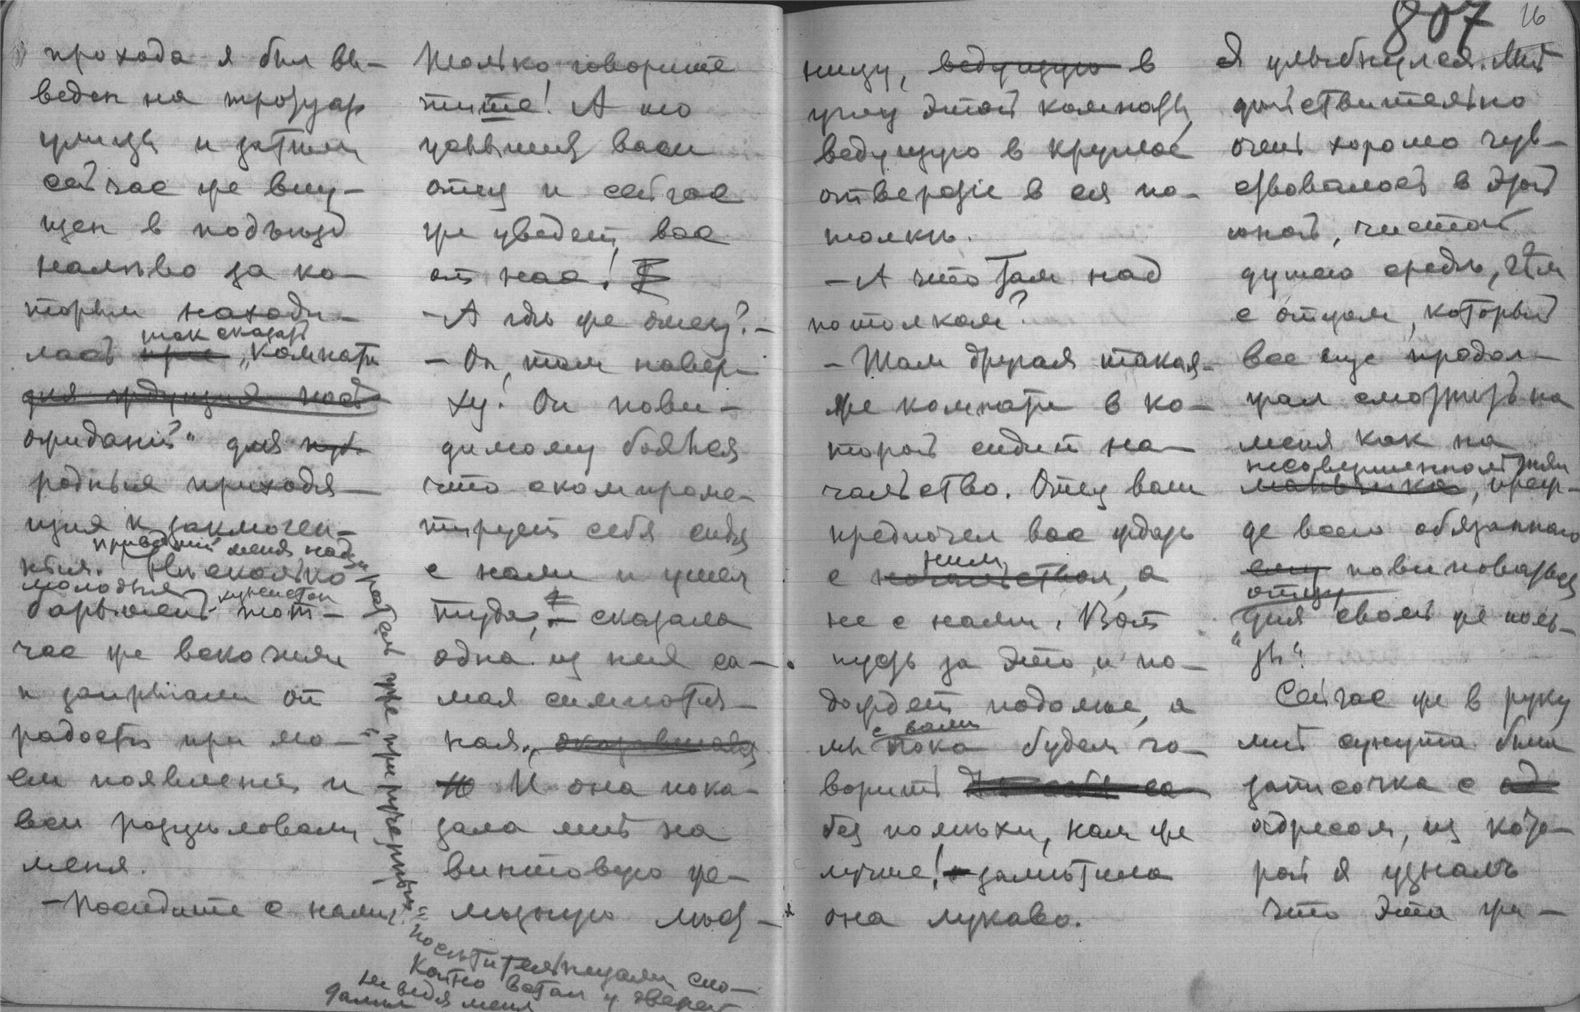 807 16
прохода я был вы-
веден на тротуар
улицы и затем
сейчас же впу-
щен в подъезд
налево за ко-
торым находи-
так сказать
лась „комната
ожиданий“ для
родныя приходя-
щия к заключен-
ным.
приведший меня над-
Несколько
молодыя
барышень тот-
час же вскочили
и запрыгали от
радости при мо-
ем появлении и
все расцеловали
меня.
– Посидите с нами,
только говорите
тише! А то
услышит ваш
отец и сейчас
же уведет вас
от нас!
– А где же отец? –
– Он, там навер-
ху! Он пови-
димому боялся
что скомпроме-
тирует себя сидя
с нами и ушел
туда, – сказала
одна из них са-
мая симпатич-
ная,
И она пока-
зала мне на
винтовую же-
лезную лест-
ницу, ведущую в
углу этой комнаты,
ведущую в круглое
отверстие в ея по-
толке.
– А что там над
потолком?
– Там другая такая-
же комната в ко-
торой сидит на-
чальство. Отец ваш
предпочел вас ждать
с ним, а
не с нами. Вот
пусть за это и по-
дождет подольше, а
мы с вами
пока будем го-
ворить
без помехи, нам же
лучше! – заметила
она лукаво.
Я улыбнулся. Мне
действительно
очень хорошо чув-
ствовалось в этой
юной, чистой
среде, чем
с отцом, который
все еще продол-
жал смотреть на
меня как на
несовершеннолетняя
, преж-
де всего обязанного
повиноваться
отцу
для своей же поль-
зы“.
Сейчас же в руку
мне сунута была
записочка с
адресом, из кото-
рой я узнал
что эта